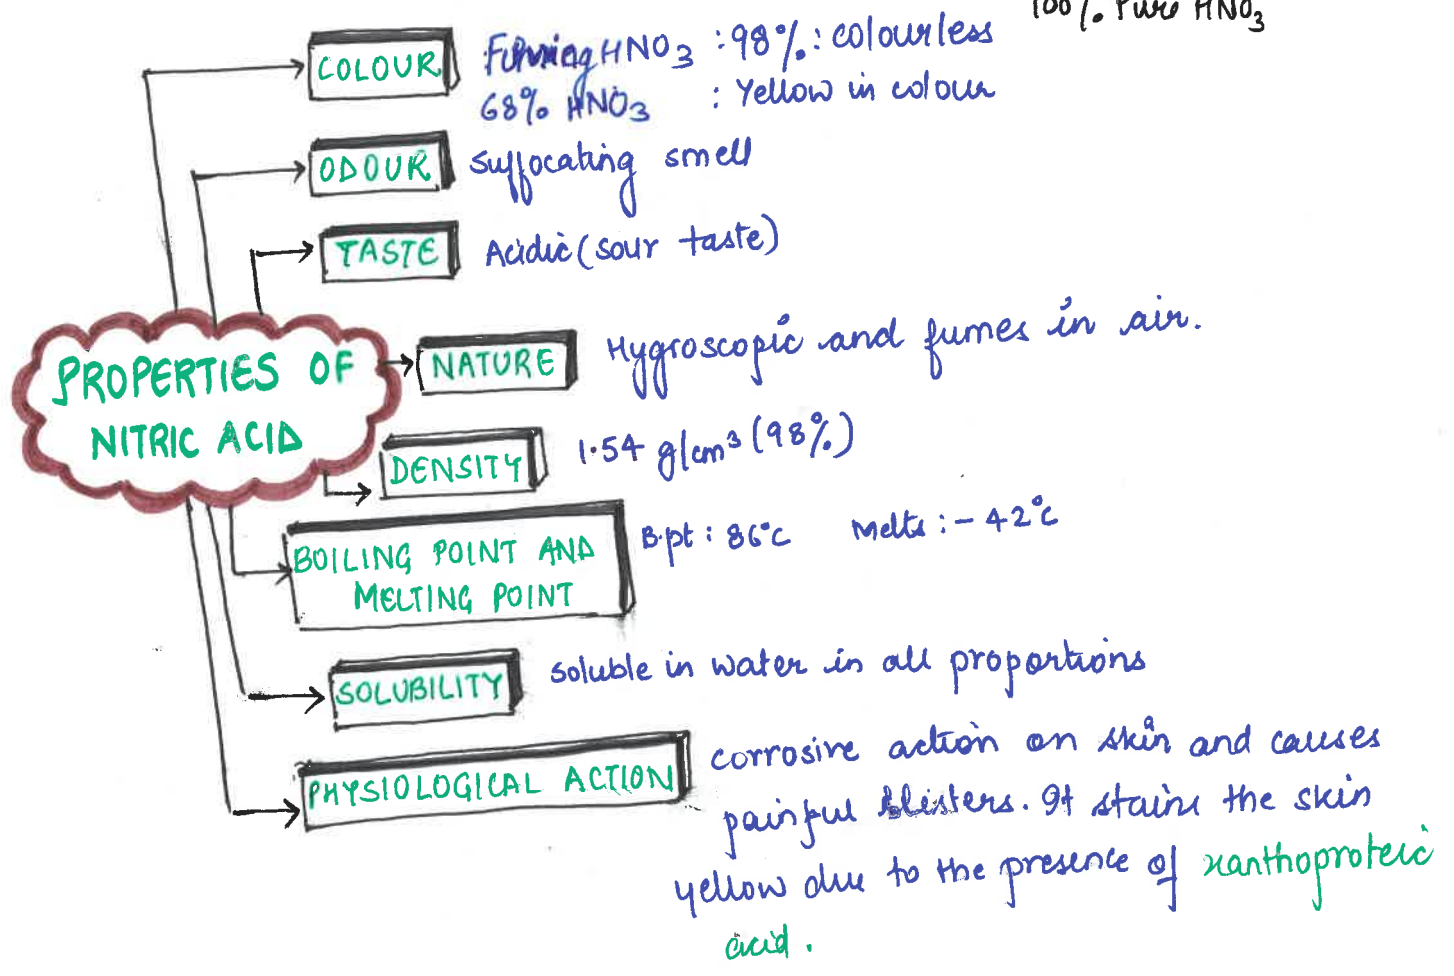 100% Pure HNO3
COLOUR Fuming HNO3 : 98% : colourless
68% HNO3 : Yellow in colour
ODOUR suffocating smell
TASTE Acidic (sour taste)
NATURE Hygroscopic and fumes in air.
PROPERTIES OF
NITRIC ACID
DENSITY 1.54 g/cm³ (98%)
BOILING POINT AND B.pt : 86°C Melts : - 42°C
MELTING POINT
SOLUBILITY soluble in water in all proportions
PHYSIOLOGICAL ACTION corrosive action on skin and causes
painful blisters. It stains the skin
yellow due to the presence of xanthoproteic
acid.